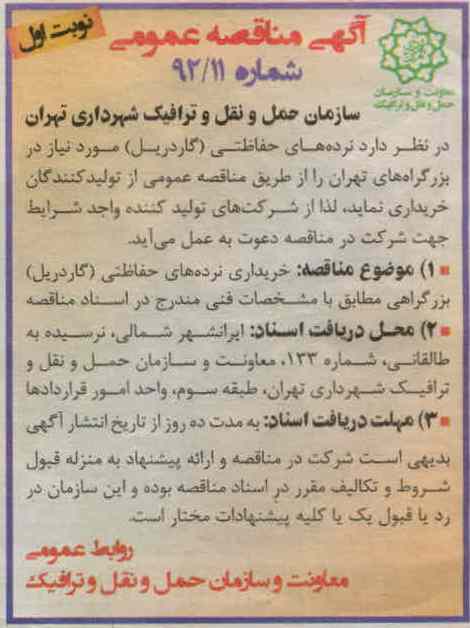 نوبت اول
آگهی مناقصه عمومی
شماره ۹۲/۱۱
معاونت و سازمان
حمل و نقل و ترافیک
سازمان حمل و نقل و ترافیک شهرداری تهران
در نظر دارد نرده‌های حفاظتی (گاردریل) مورد نیاز در
بزرگراه‌های تهران را از طریق مناقصه عمومی از تولیدکنندگان
خریداری نماید، لذا از شرکت‌های تولید کننده واجد شرایط
جهت شرکت در مناقصه دعوت به عمل می‌آید.
۱) موضوع مناقصه: خریداری نرده‌های حفاظتی (گاردریل)
بزرگراهی مطابق با مشخصات فنی مندرج در اسناد مناقصه
۲) محل دریافت اسناد: ایرانشهر شمالی، نرسیده به
طالقانی، شماره ۱۳۳، معاونت و سازمان حمل و نقل و
ترافیک شهرداری تهران، طبقه سوم، واحد امور قراردادها
۳) مهلت دریافت اسناد: به مدت ده روز از تاریخ انتشار آگهی
بدیهی است شرکت در مناقصه و ارائه پیشنهاد به منزله قبول
شروط و تکالیف مقرر در اسناد مناقصه بوده و این سازمان در
رد یا قبول یک یا کلیه پیشنهادات مختار است.
روابط عمومی
معاونت و سازمان حمل و نقل و ترافیک